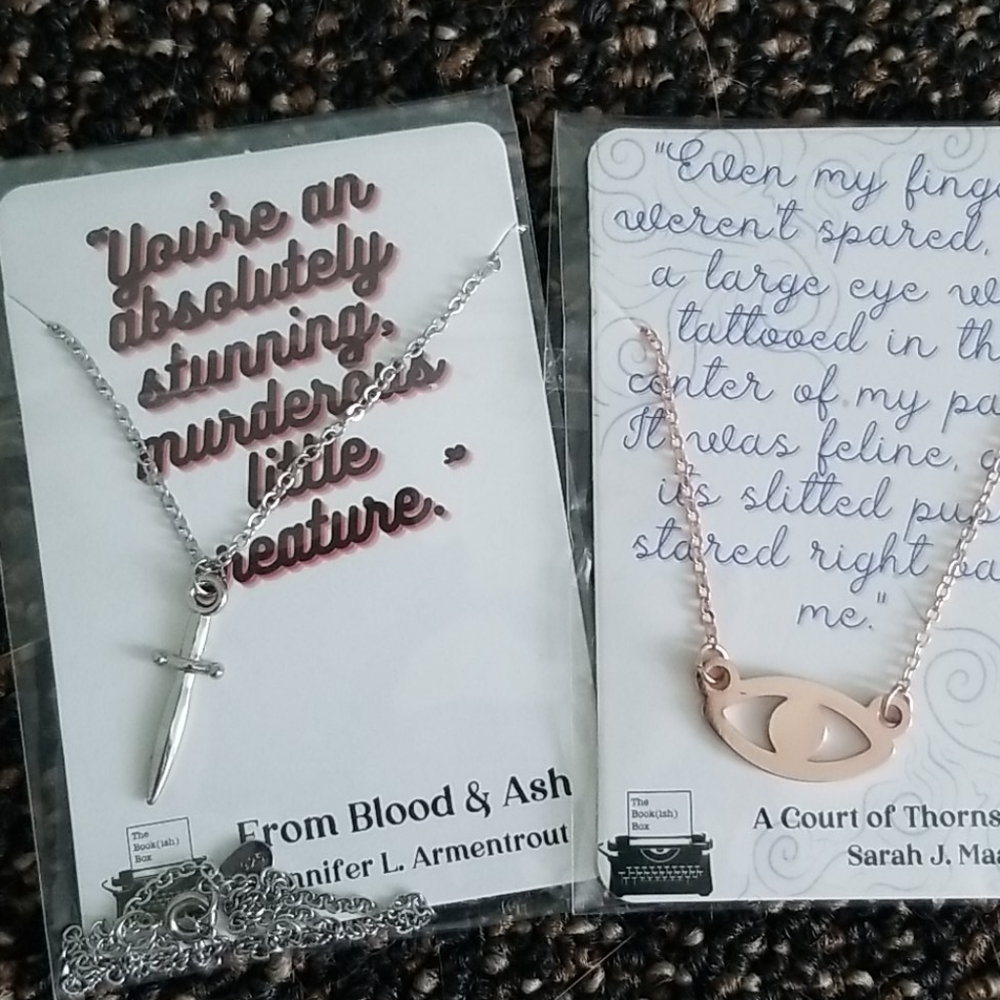 "You're an
absolutely
stunning,
murderous
little
creature."
The
Book(ish)
Box
From Blood & Ash
Jennifer L. Armentrout
925
"Even my fing
weren't spared,
a large eye w
tattooed in th
center of my pa
It was feline,
it's slitted pup
stared right ba
me."
The
Book(ish)
Box
A Court of Thorns
Sarah J. Maa